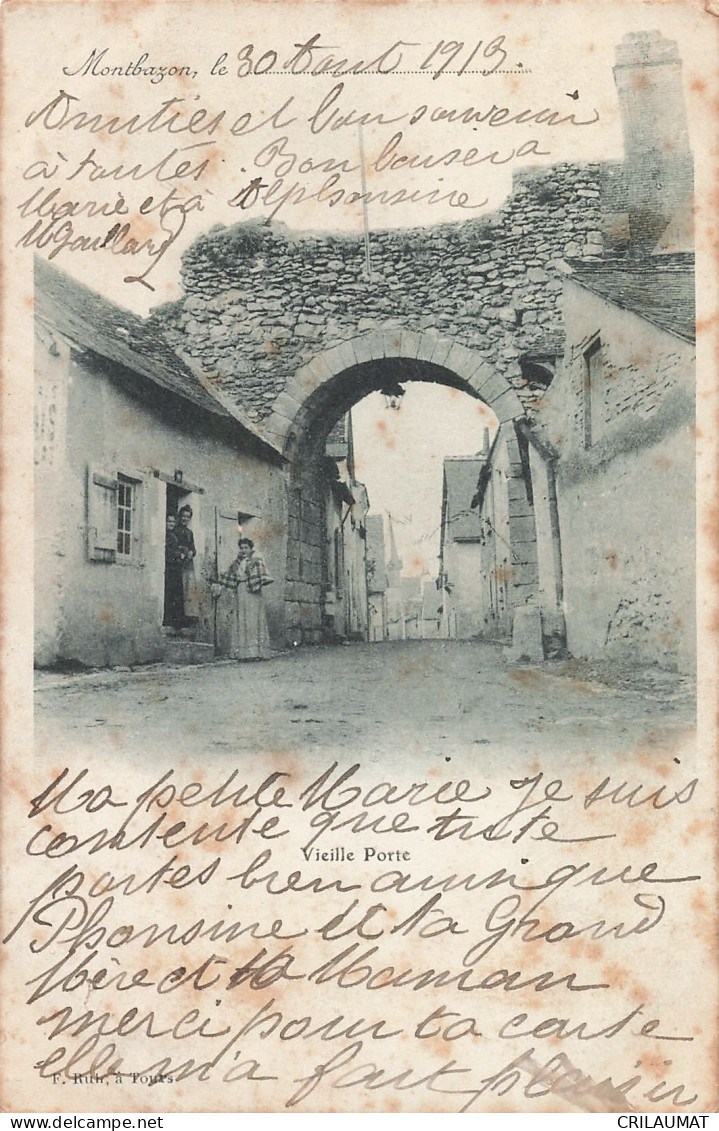 Montbazon, le 30 Aout 1913
Amitiés et bon souvenir
à toutes. Bon baiser a
Marie et à Alphonsine
M Gaillard
Ma petite Marie Je suis
contente que tu te
Vieille Porte
portes bien ainsi que
Phonsine et ta Grand
Mère et ta Maman
merci pour ta carte
elle m'a fait plaisir
F. Ruh, à Tours
CRILAUMAT